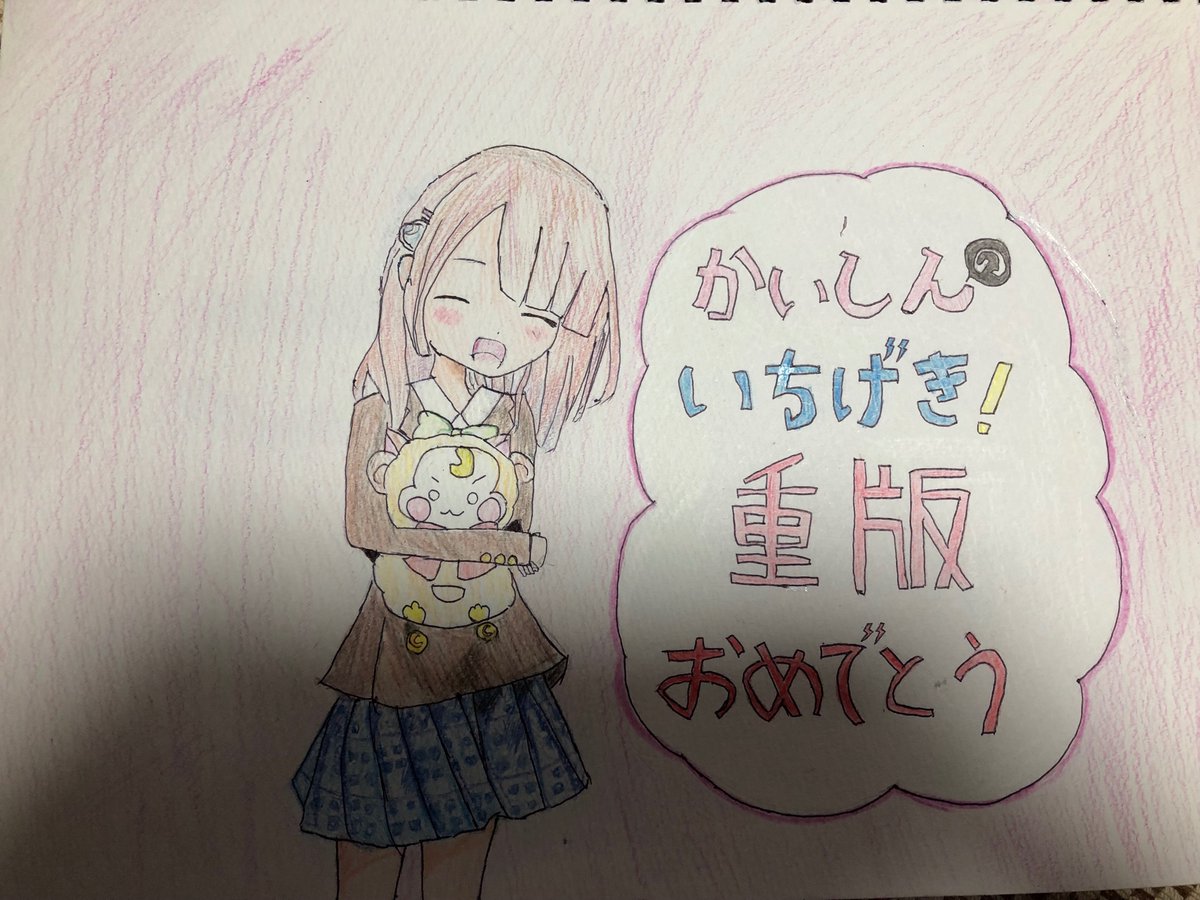 かいしんの
いちげき!
重版
おめでとう